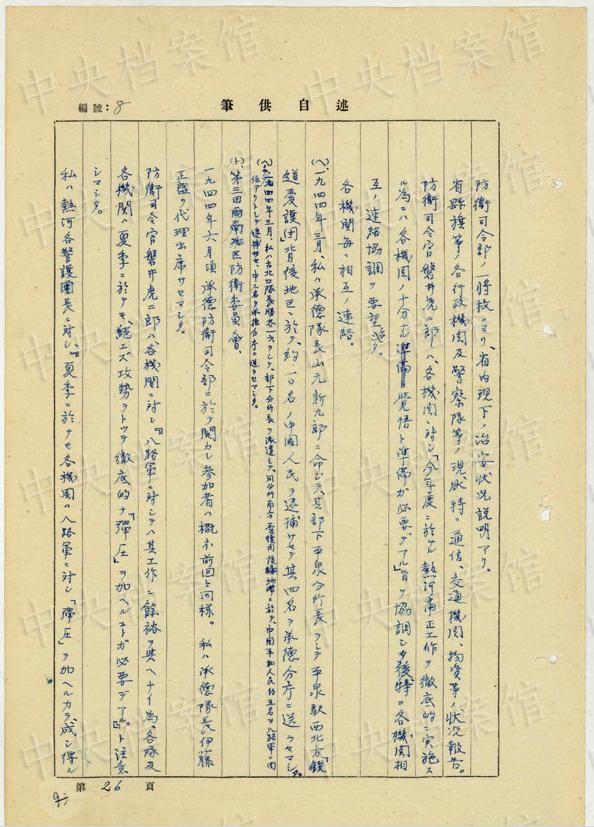 述自供筆
編號:8
防衛司令部ノ一将校ニヨリ、省内現下ノ治安状況説明アリ。
省、縣、旗等ノ各行政機関及警察隊等ノ現状特ニ通信、交通機関、物資等ノ状況報告。
防衛司令官磐井虎二郎ハ、各機関ニ対シ「今年度ニ於ケル熱河粛正工作ヲ徹底的ニ実施ス
ル為ニハ各機関ノ十分ナ準備ト覚悟ト準備ガ必要デアル」旨ヲ協調シタ後特ニ各機関相
互ノ連絡協調ヲ要望シタ。
各機関毎ニ相互ノ連絡。
(ヘ)、一九四四年三月、私ハ承德隊長山元新九郎ニ命ジテ、其部下平泉分所長ヲシテ平泉駅西北方「鉄
道愛護団」背後地区ニ於テ、約一〇名ノ中国人民ヲ逮捕サセテ其四名ヲ承德分庁ニ送ラセマシタ。
(ヘ)ノ二、一九四四年三月、私ハ古北口隊長ヲシテ、部下分所長ヲ派遣シテ、
(ト)、第三回西南地区防衛委員会、
一九四四年六月頃承德防衛司令部ニ於テ開カレ参加者ハ概ネ前回ト同様。 私ハ承德隊長伊藤
正盛ヲ代理出席サセマシタ。
防衛司令官磐井虎二郎ハ各機関ニ対シ『八路軍ニ対シテハ其工作ニ餘裕ヲ與ヘナイ為、各隊及
各機関ハ夏季ニ於テモ、絶エズ攻勢ヲトッテ徹底的ナ「弾圧」ヲ加ヘルコトガ必要デアル』ト注意
シマシタ。
私ハ熱河各警護團長ニ対シ、『夏季ニ於テモ各機関ハ八路軍ニ対シ「弾圧」ヲ加ヘルカラ、成シ得ル
第 26 頁
中央档案馆